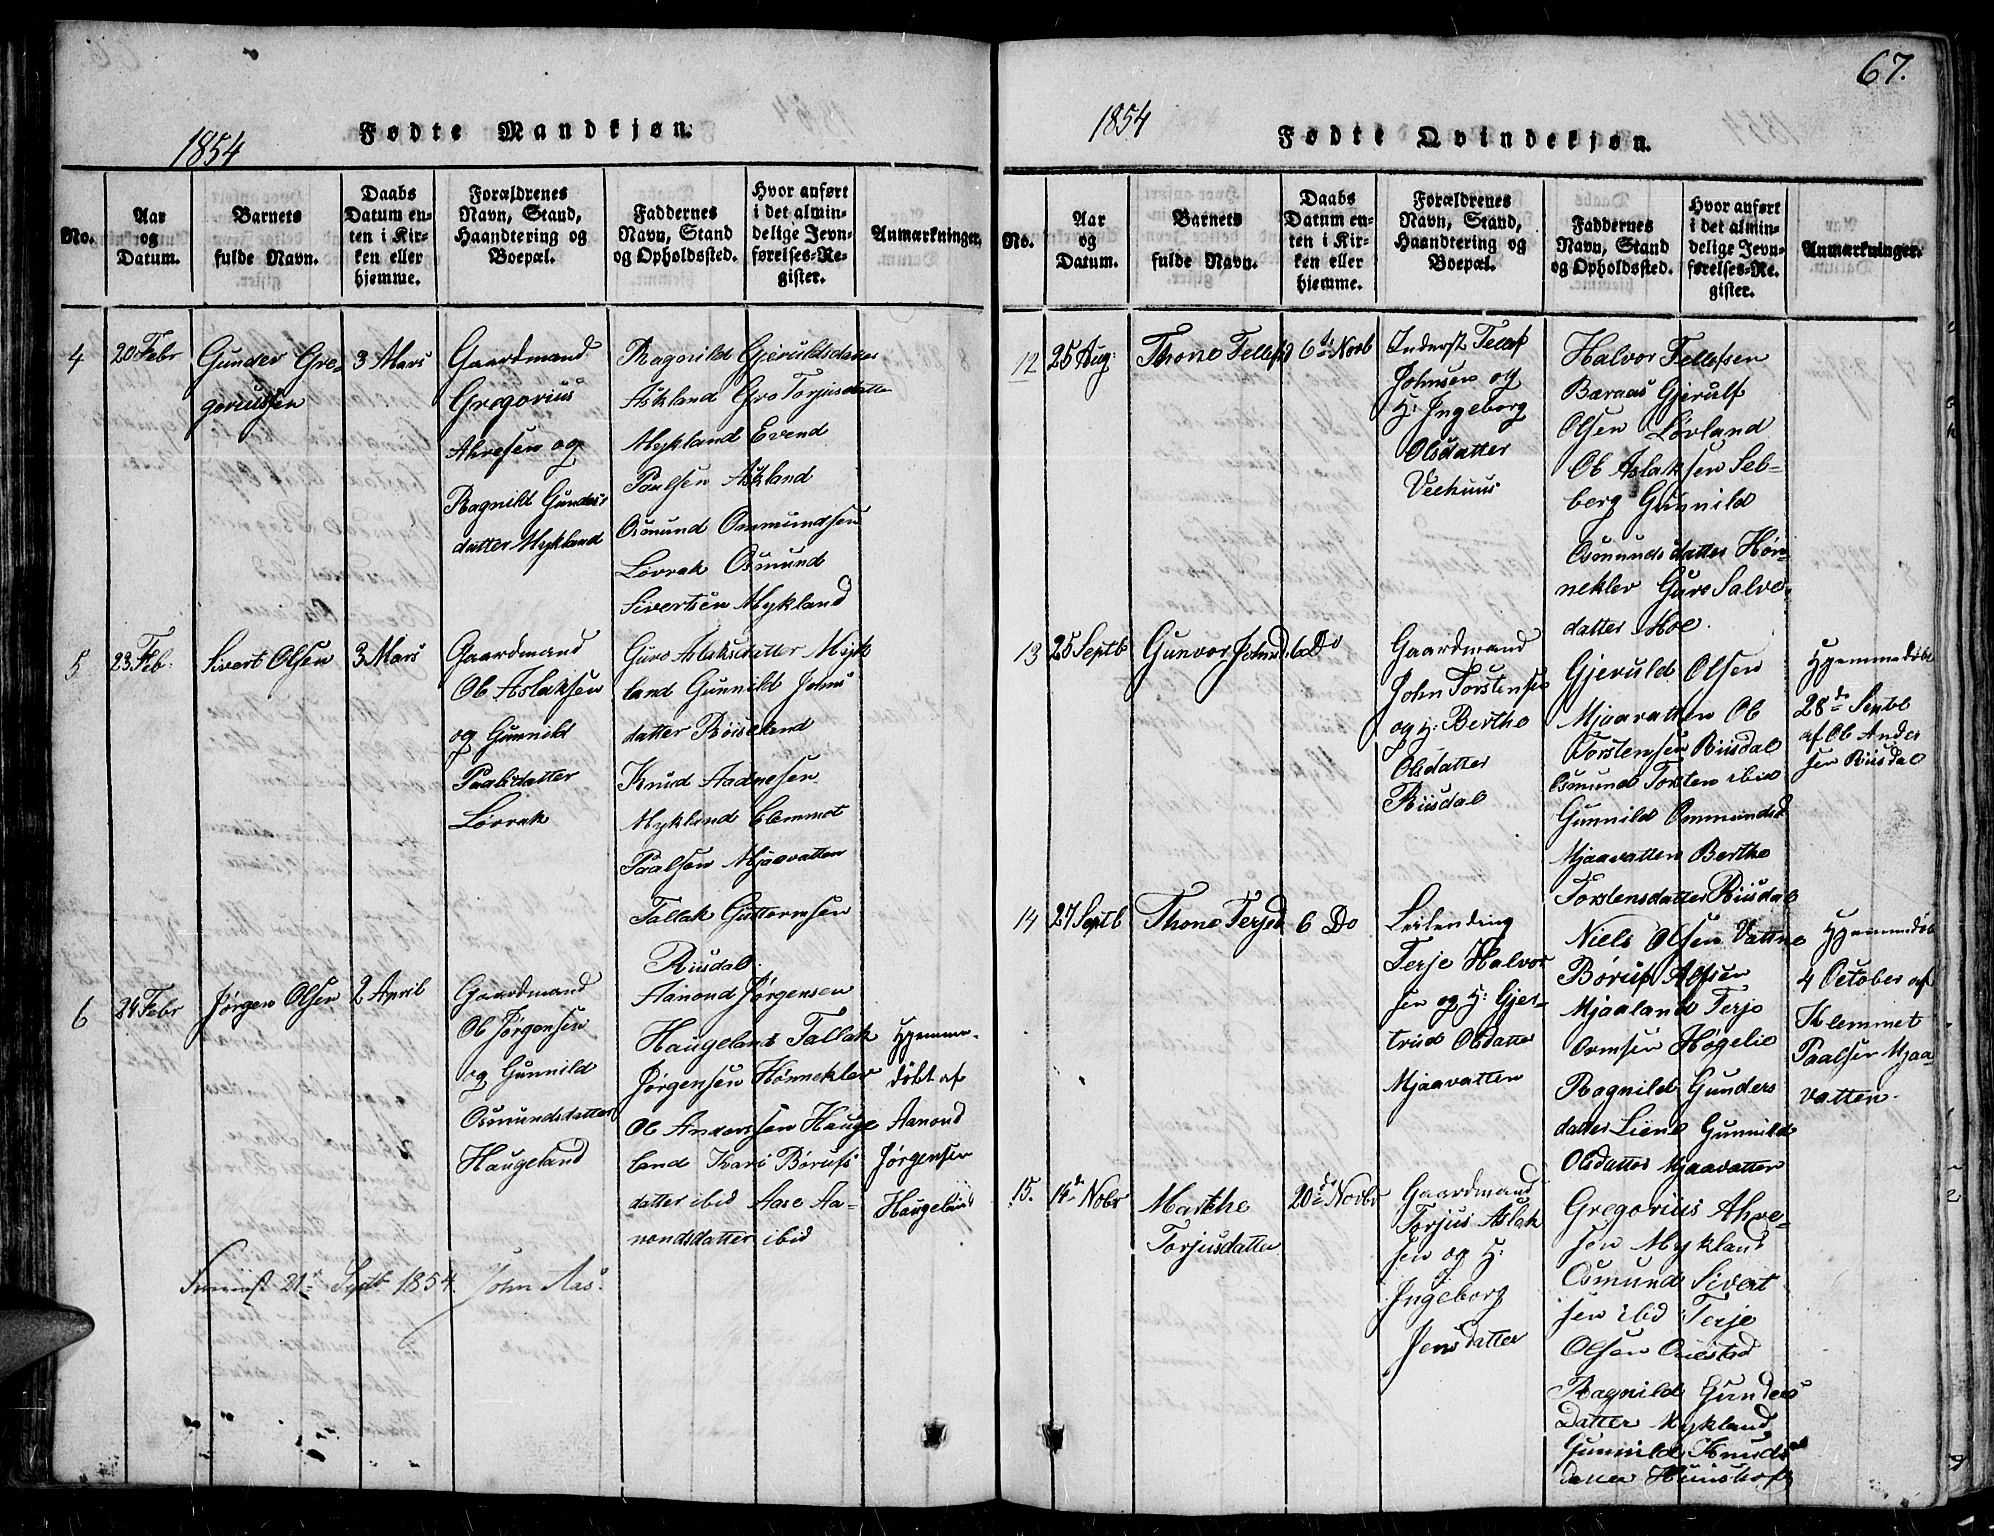 1854
Fødte Mandkjøn.
No.
Aar
og
Datum.
Barnets
fulde Navn.
Daabs
Datum en-
ten i Kir-
ken eller
hjemme.
Forældrenes
Navn, Stand,
Haandtering og
Boepæl.
Faddernes
Navn, Stand
og Opholdssted.
Hvor anført
i det almin-
delige Jevn-
førelses-Re-
gister.
Anmærkninger.
4
20 Febr
Gunder Gre-
goriussen
3 Mars
Gaardmand
Gregorius
Ahresen og
Ragnild Gunders
datter Mykland
Ragnild Gjeruldsdatter
Askland Gro Torjusdatter
Mykland Evend
Paulsen Askland
Osmund Ommundsen
Lovrak Osmund
Sivertsen Mykland
5
23 Feb.
Sivert Olsen
3 Mars
Gaardmand
Ob Aslaksen
og Gunnild
Paalsdatter
Lovrak
Guro Aslaksdatter Myk
land Gunnild Johns
datter Røiseland
Knud Aadnesen
Mykland Clemmet
Paalsen Mjaavatten
Tallak Guttormsen
Riisdal.
6
24 Febr
Jørgen Olsen
2 April
Gaardmand
Ob Jørgensen
og Gunnild
Osmundsdatter
Haugeland
Aanond Jørgensen
Haugeland Tallak
Jørgensen Hønnekler
Ob Andersen Hauge
land Kari Børufs
datter ibid Aase Aa-
nondsdatter ibid
Hjemme-
døbt af
Aanond
Jørgensen
Haugeland
21de Septb. 1854. John Aas.
67.
1854
Fødte Qvindekjøn.
No.
Aar
og
Datum.
Barnets
fulde Navn.
Daabs
Datum en-
ten i Kir-
ken eller
hjemme.
Forældrenes
Navn, Stand,
Haandtering og
Boepæl.
Faddernes
Navn, Stand
og Opholdssted.
Hvor anført
i det almin-
delige Jevn-
førelses-Re-
gister.
Anmærkninger.
12
25 Aug:
Thone Tellefsd
6de Novb
Inderst Tellef
Johnsen og
H: Ingeborg
Olsdatter
Veehuus
Halvor Tellefsen
Baraas Gjerulf
Olsen Løvland
Ob Aslaksen Sel-
berg Gunnild
Osmundsdatter Høn-
nekler Gure Salve-
datter Moe.
13
25 Septb
Gunvor Johnsd.
6 Do
Gaardmand
John Torstensen
og H: Berthe
Olsdatter
Riisdal
Gjeruld Olsen
Mjaavatten Ob
Torstensen Riisdal
Osmund Torsten ibid
Gunnild Ommundsd
Mjaavatten Berthe
Torstensdatter Riisdal
Hjemmedøbt
28de Septb
af Ob Ander
sen Riisdal
14
27 Septb
Thone Terjesd
6 Do
Leilending
Terje Halvor
sen og H: Gjer-
trud Olsdatter
Mjaavatten
Niels Olsen Vattne
Børuf Alfsen
Mjaaland Terje
Ormsen Høgelie
Ragnild Gunders
datter Liene Gunnild
Olsdatter Mjaavatten
Hjemmedøbt
4 October af
Klemmet
Paalsen Mjaa
vatten.
15.
14de Nobr
Marthe
Torjusdatter
20de Novbr
Gaardmand
Torjus Aslak
sen og H:
Ingeborg
Jensdatter
Gregorius Ahre-
sen Mykland
Osmund Sivert
sen ibid Terje
Olsen Ouestad
Ragnild Gunders
datter Mykland
Gunnild Knuds
datter